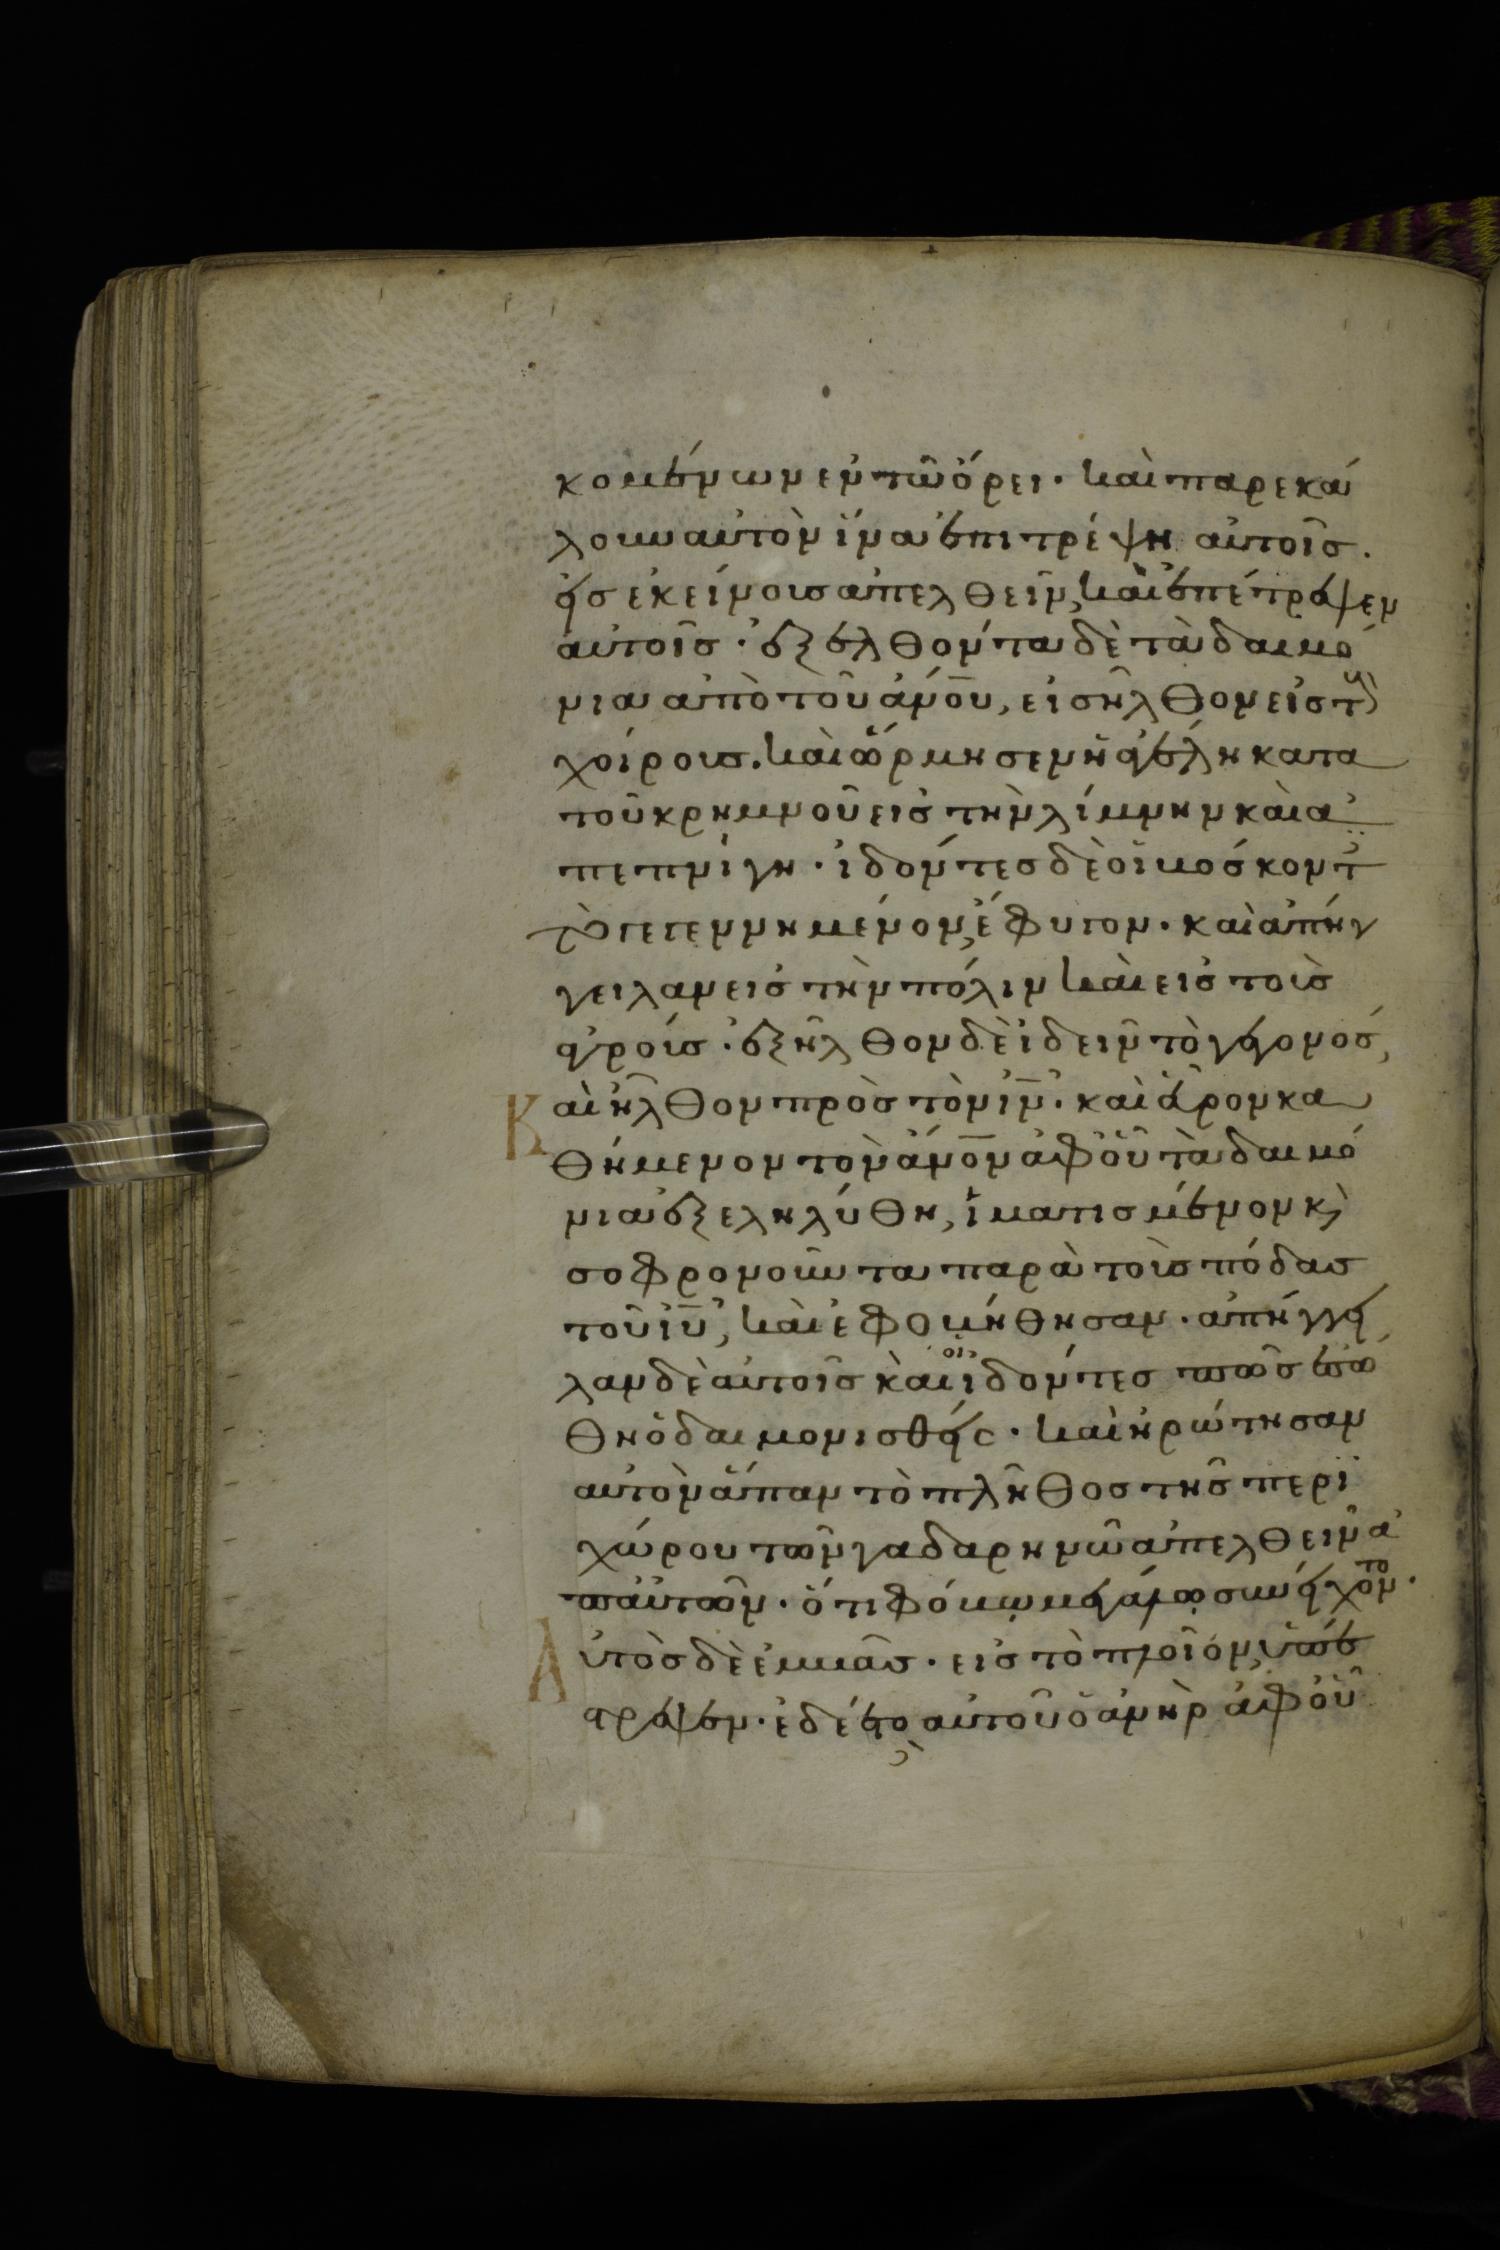 κομένων ἐν τῶ ὄρει · καὶ παρεκά
λουν αὐτὸν ἵνα ἐπιτρέψη αὐτοῖς .
εἰς ἐκείνους ἀπελθεῖν, καὶ ἐπέτρεψεν
αὐτοῖς · ἐξελθόντα δὲ τὰ δαιμό
νια ἀπὸ τοῦ ἀνου, εἰσῆλθον εἰς τοὺ
χοίρους . καὶ ὥρμησεν ἡ ἀγέλη κατα
τοῦ κρημνοῦ εἰς τὴν λίμνην καὶ ἀ
πεπνίγη · ἰδόντες δὲ οἱ βόσκοντ
τὸ γεγεννημένον, ἔφυγον · καὶ ἀπήγ
γειλαν εἰς τὴν πόλιν καὶ εἰς τοὺς
ἀγρούς · ἐξῆλθον δὲ ἰδεῖν τὸ γεγονός,
Καὶ ἦλθον πρὸς τὸν ιν · καὶ εὗρον κα
θήμενον τὸν ἀνον ἀφ οὗ τὰ δαιμό
νια ἐξεληλύθη, ἱματισμένον κ
σοφρονοῦντα παρὰ τοὺς πόδας
τοῦ ιυ, καὶ ἐφοβήθησαν · ἀπήγγει
λαν δὲ αὐτοῖς καὶ οἱ ἰδόντες πῶς ἐσώ
θη ὁ δαιμονισθείς · καὶ ἠρώτησαν
αὐτὸν ἅπαν τὸ πλῆθος τῆς περι
χώρου τῶν γαδαρηνῶ ἀπελθεῖν ἀ
π αὐτῶν · ὅτι φόβω μεγάλω συνείχοντο ·
Αὐτὸς δὲ ἐμβὰς · εἰς τὸ πλοῖον, ὑπέ
στρεψεν · ἐδέετο αὐτοῦ ὁ ἀνὴρ ἀφ οὗ